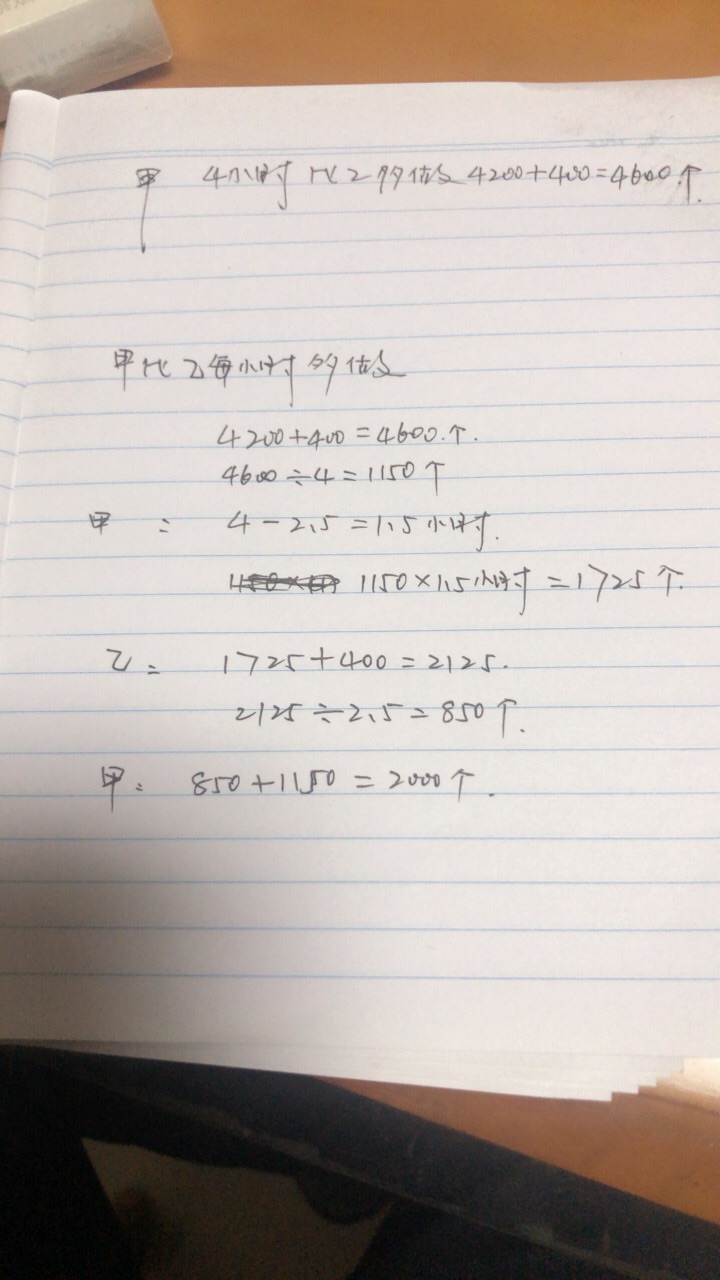 甲 4小时比乙多做 4200+400=4600个.
甲比乙每小时多做
4200+400=4600.个.
4600÷4=1150个
甲: 4-2.5=1.5小时.
1150×1.5小时=1725个.
乙: 1725+400=2125.
2125÷2.5=850个.
甲: 850+1150=2000个.